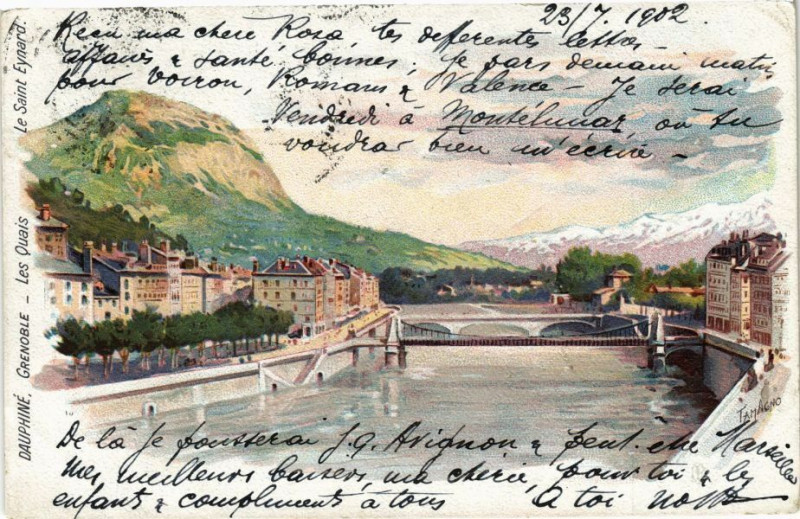 23/7. 1902.
Reçu ma chere Rosa tes differentes lettres -
affaires & santé bonnes; je pars demain matin
pour Voiron, Romans & Valence - Je serai
Vendredi à Montélimar, où tu
voudras bien m'écrire -
Le Saint Eynard
Les Quais
DAUPHINÉ, GRENOBLE -
TAMAGNO
De là je pousserai j.q. Avignon & peut-etre Marseille
Mes meilleurs baisers, ma chérie, pour toi & les
enfants & compliments à tous A toi